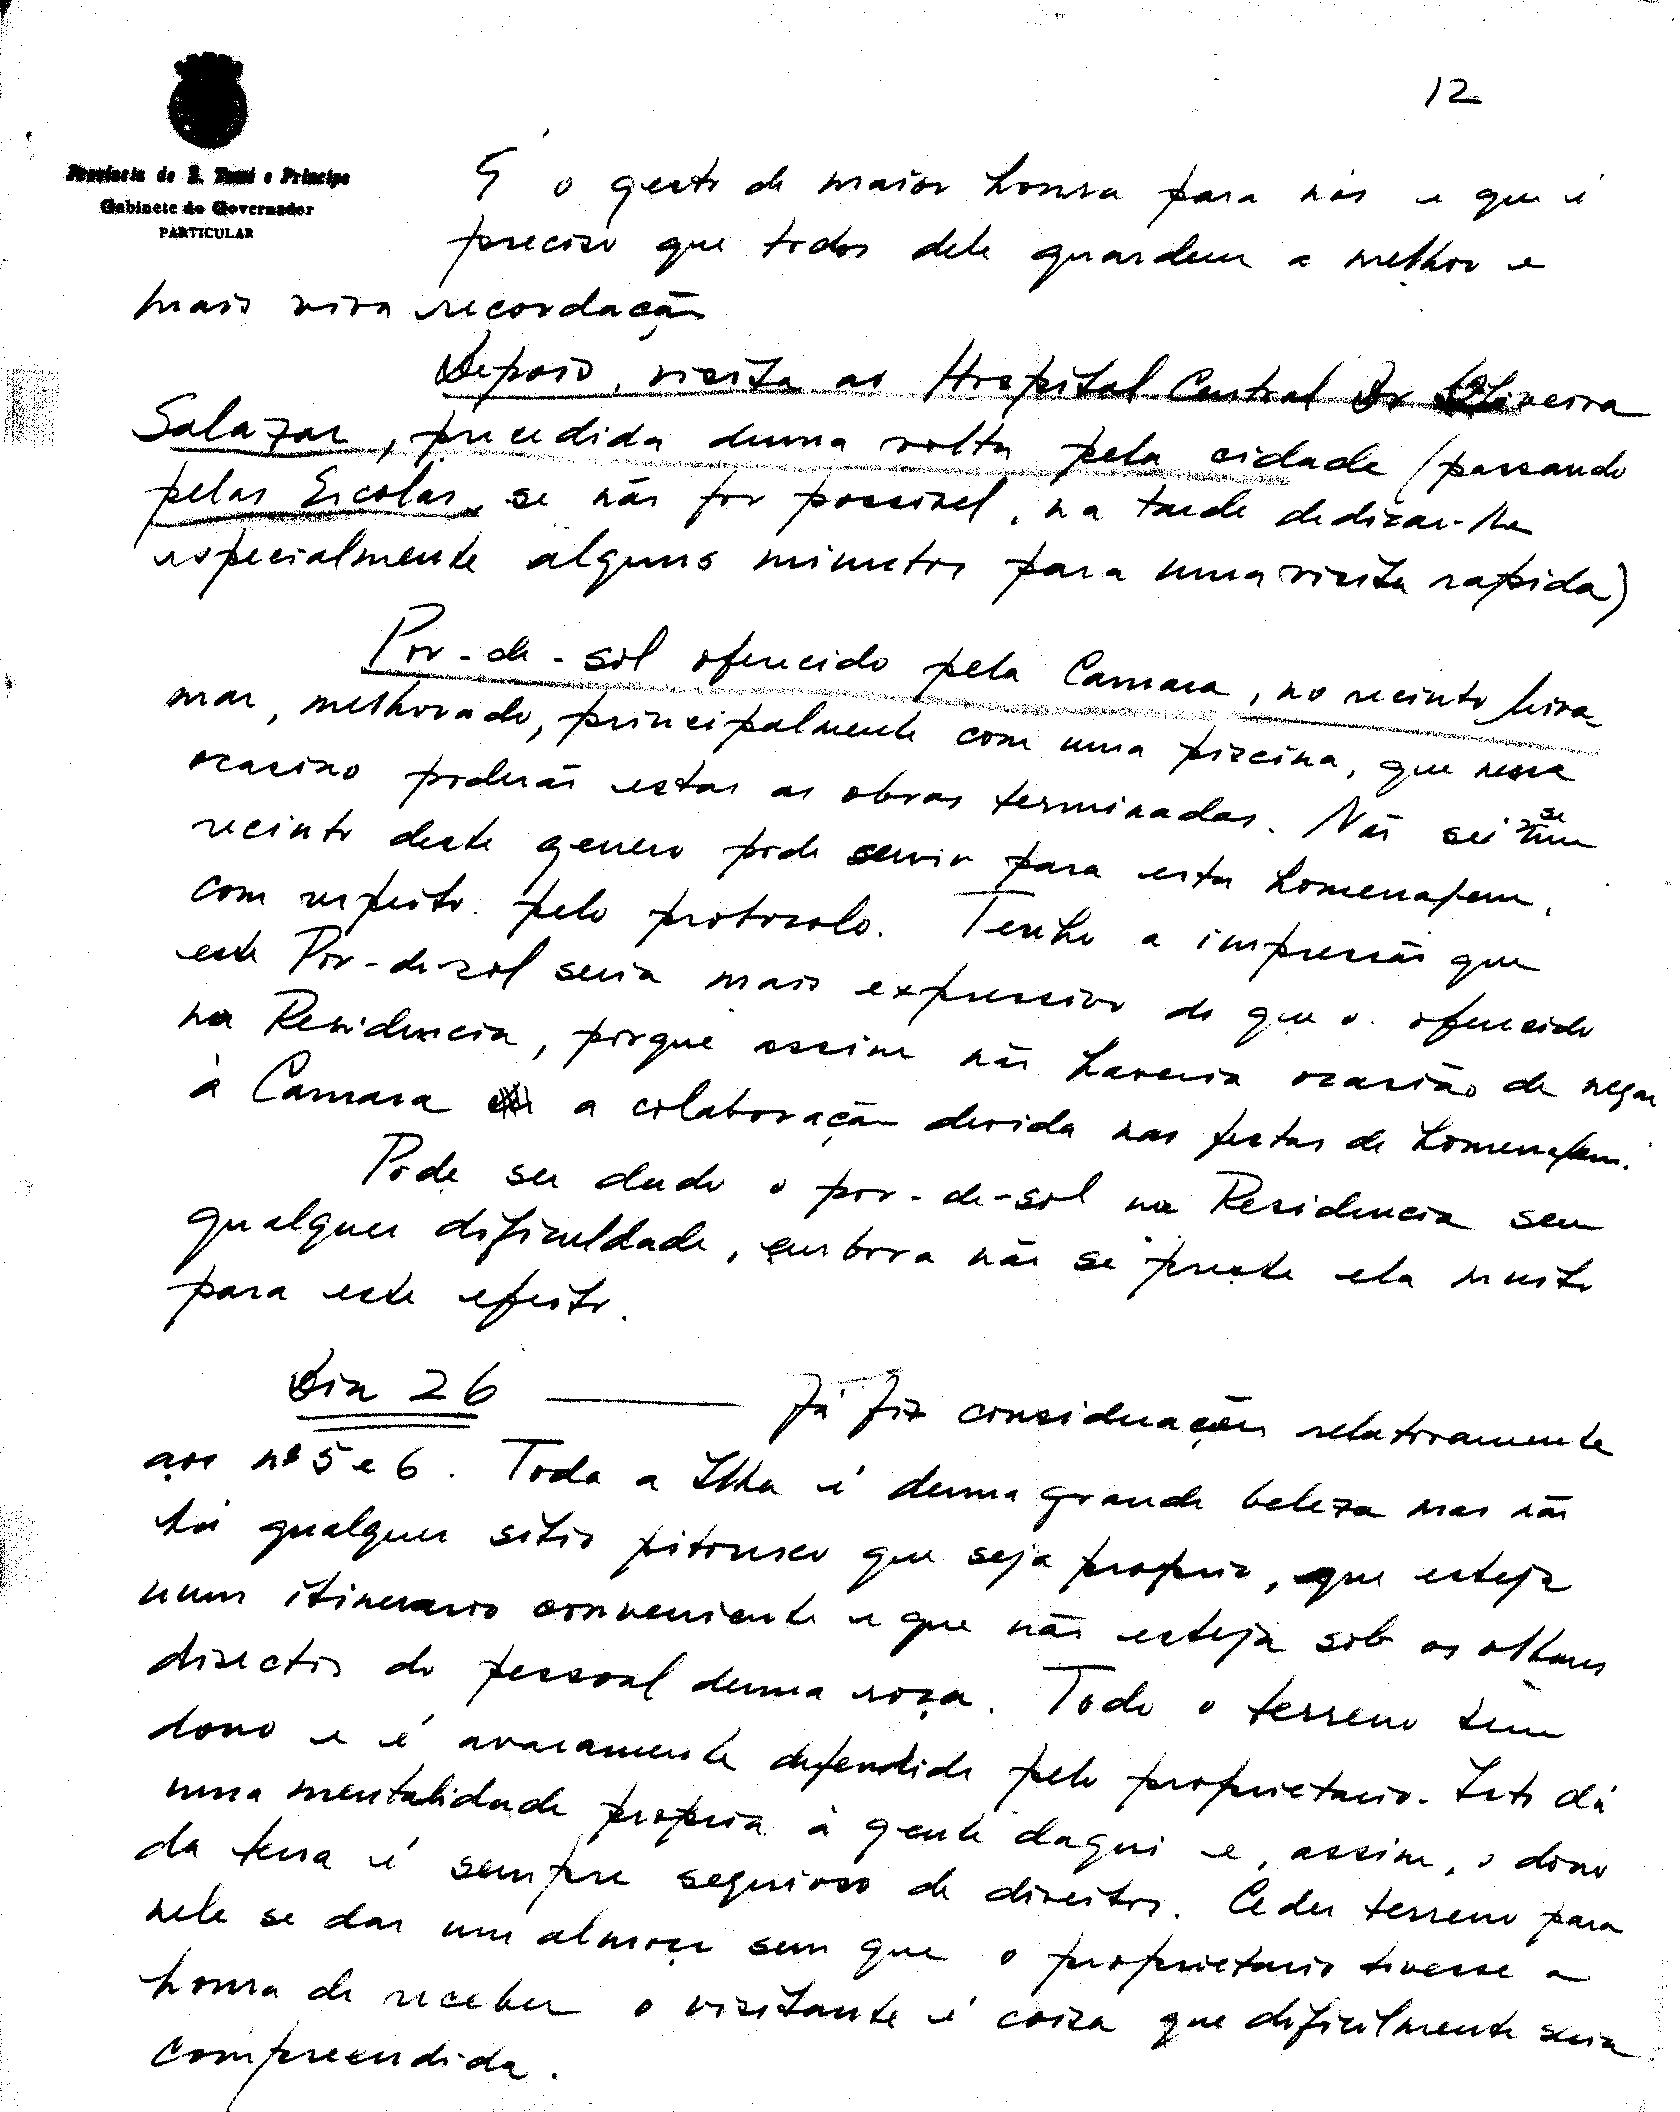 12
Provincia de S. Tomé e Principe
Gabinete do Governador
PARTICULAR
É o gesto de maior honra para nós e que é
preciso que todos dele guardem a melhor e
mais viva recordação
Depois, visita ao Hospital Central Dr Oliveira
Salazar, precedida duma volta pela cidade (passando
pelas Escolas, se não for possivel, na tarde dedicar-lhe
especialmente alguns minutos para uma visita rapida)
Por-de-sol oferecido pela Camara, no recinto beira
mar, melhorado, principalmente com uma piscina, que nessa
ocasião poderão estar as obras terminadas. Não sei se um
recinto deste genero pode servir para esta homenagem,
com respeito pelo protocolo. Tenho a impressão que
este Por-de-sol seria mais expressivo do que o oferecido
na Residencia, porque assim não haveria ocasião de negar
à Camara a colaboração devida nas festas de homenagem.
Pode ser dado o por-de-sol na Residencia sem
qualquer dificuldade, embora não se preste ela muito
para este efeito.
Dia 26 — Já fiz considerações relativamente
aos nº 5 e 6. Toda a Ilha é duma grande beleza mas não
há qualquer sitio pitoresco que seja proprio, que esteja
num itinerario conveniente e que não esteja sob os olhares
directos do pessoal duma roça. Todo o terreno tem
dono e é avaramente defendido pelo proprietario. Isto dá
uma mentalidade propria à gente daqui e, assim, o dono
da terra é sempre sequioso de direitos. Ceder terreno para
nele se dar um almoço sem que o proprietario tivesse a
honra de receber o visitante é coisa que dificilmente seria
compreendida.